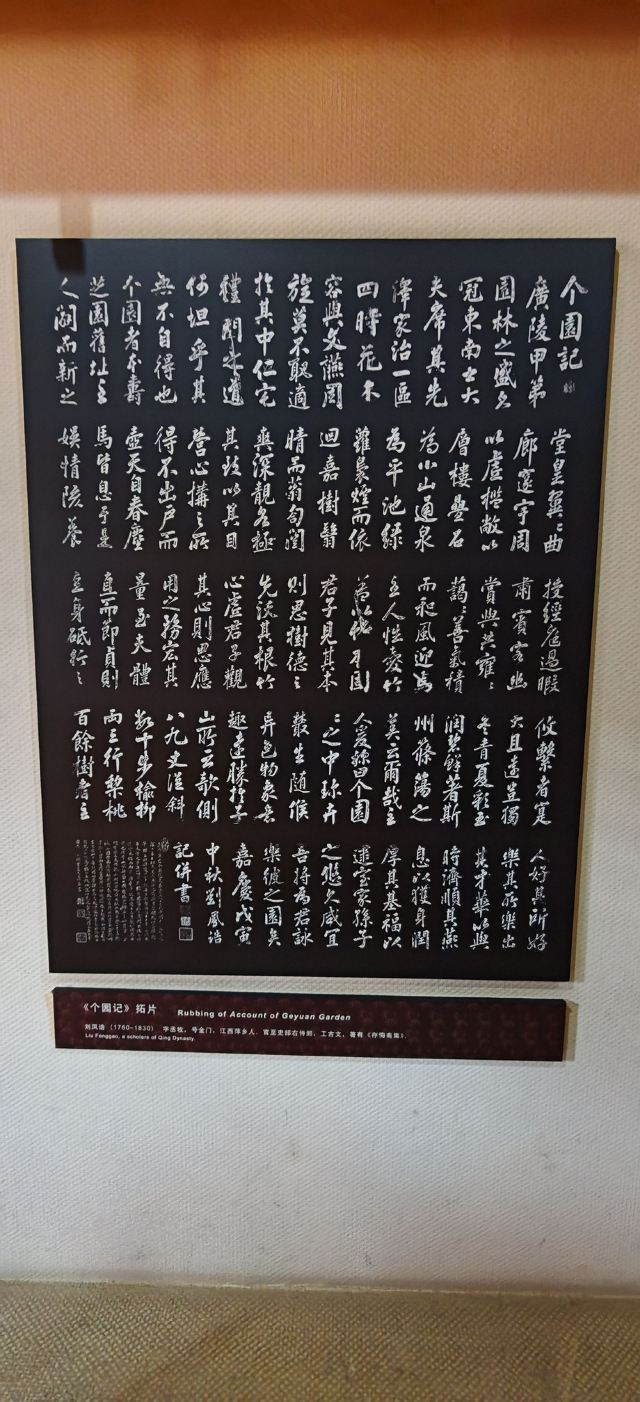 个園記
廣陵甲第
園林之盛名
冠東南士大
夫席其先
澤家治一區
四時花木
容與文讌周
旋莫不取適
於其中仁宅
禮門之道
何坦乎其
無不自得也
个園者本壽
芝園舊址主
人闢而新之
堂皇翼〻曲
廊邃宇周
以虛檻敞以
層樓疊石
為小山通泉
為平池綠
蘿裊煙而依
迴嘉樹翳
晴而蓊匌闓
爽深靚各極
其致以其目
營心搆之所
得不出戶而
壺天自春塵
馬皆息于是
娛情陔養
授經庭過暇
肅賓客幽
賞與共雍〻
藹〻善氣積
而和風迎焉
主人性愛竹
蓋以竹本固
君子見其本
則思樹德之
先沃其根竹
心虛君子觀
其心則思應
用之務宏其
量至夫體
直而節貞則
立身砥行之
攸繫者寔
大且遠豈獨
冬青夏彩玉
潤碧鮮著斯
州篠簜之
美云爾哉主
人爰稱曰个園
園之中珍卉
叢生随候
異色物象意
趣遠勝於子
山所云欹側
八九丈從斜
數十步榆柳
兩三行棃桃
百餘樹者主
人好其所好
樂其所樂出
其才華以與
時濟順其燕
息以獲身潤
厚其基福以
逮室家孫子
之悠久咸宜
吾將為君詠
樂彼之園矣
嘉慶戊寅
中秋劉鳳誥
記併書
《个园记》拓片 Rubbing of Account of Geyuan Garden
刘凤诰（1760-1830） 字丞牧，号金门，江西萍乡人，官至吏部右侍郎，工古文，著有《存悔斋集》。
Liu Fenggao, a scholars of Qing Dynasty.